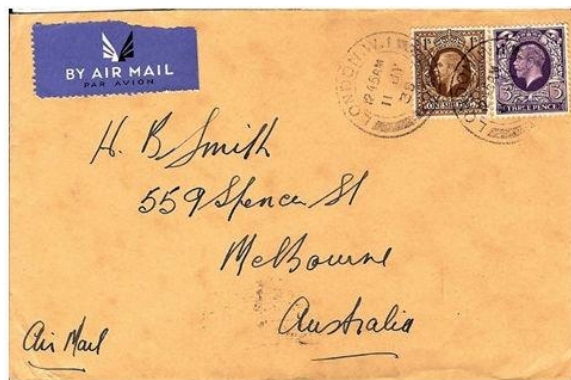 BY AIR MAIL
PAR AVION
LONDON.W.1
12 45AM
11 JY
36
ONE SHILLING
THREE PENCE
H. B Smith
559 Spencer St
Melbourne
Australia
Air Mail